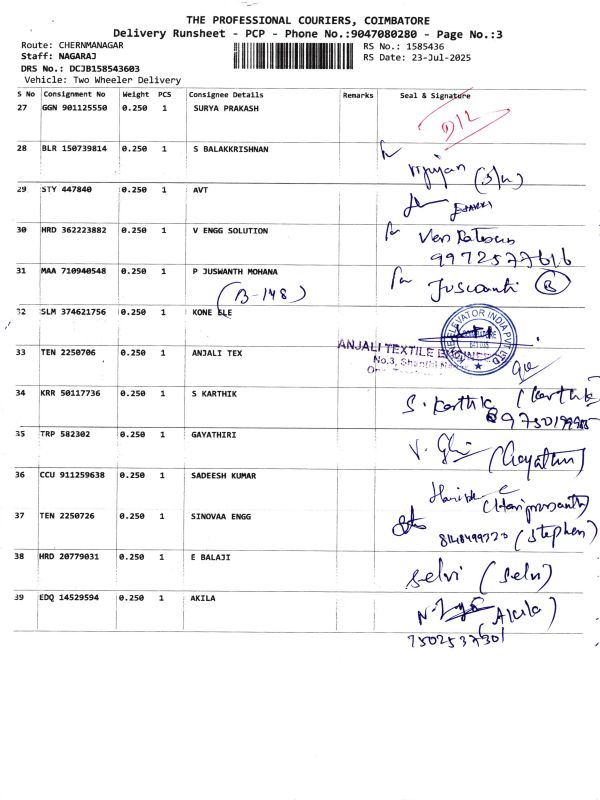 THE PROFESSIONAL COURIERS, COIMBATORE
Delivery Runsheet - PCP - Phone No.:9047080280 - Page No.:3
Route: CHERNMANAGAR RS No.: 1585436
Staff: NAGARAJ RS Date: 23-Jul-2025
DRS No.: DCJB158543603
Vehicle: Two Wheeler Delivery
S No Consignment No Weight PCS Consignee Details Remarks Seal & Signature
27 GGN 901125550 0.250 1 SURYA PRAKASH
D/L
28 BLR 150739814 0.250 1 S BALAKKRISHNAN
29 STY 447840 0.250 1 AVT
30 HRD 362223882 0.250 1 V ENGG SOLUTION
31 MAA 710940548 0.250 1 P JUSWANTH MOHANA
(B-148)
32 SLM 374621756 0.250 1 KONE ELE
ELEVATOR INDIA PVT LTD
33 TEN 2250706 0.250 1 ANJALI TEX
ANJALI TEXTILE
No.3,
34 KRR 50117736 0.250 1 S KARTHIK
S. Karthik (Karthik
35 TRP 582302 0.250 1 GAYATHIRI
36 CCU 911259638 0.250 1 SADEESH KUMAR
37 TEN 2250726 0.250 1 SINOVAA ENGG
(Stephen)
38 HRD 20779031 0.250 1 E BALAJI
Selvi (Selvi)
39 EDQ 14529594 0.250 1 AKILA
(Akila)
7502537301